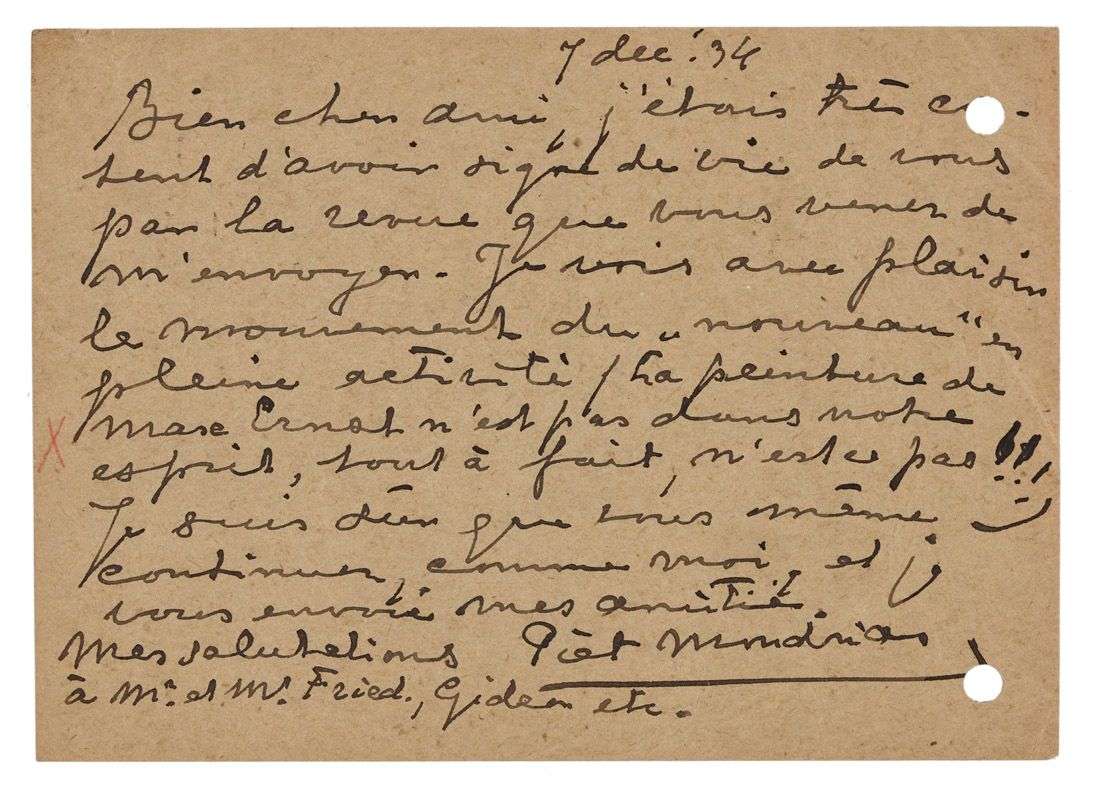 7 dec. '34
Bien cher ami, j'étais très co-
tent d'avoir signe de vie de vous
par la revue que vous venez de
m'envoyer. Je vois avec plaisir
le mouvement du „nouveau" en
pleine activité / La peinture de
Max Ernst n'est pas dans notre
esprit, tout à fait, n'est ce pas !!!)
Je suis sûr que vous même
continuez, comme moi, et je
vous envoie mes amitié.
Mes salutations Piet Mondrian
à Mr. et Mr. Fried., Gideon etc.